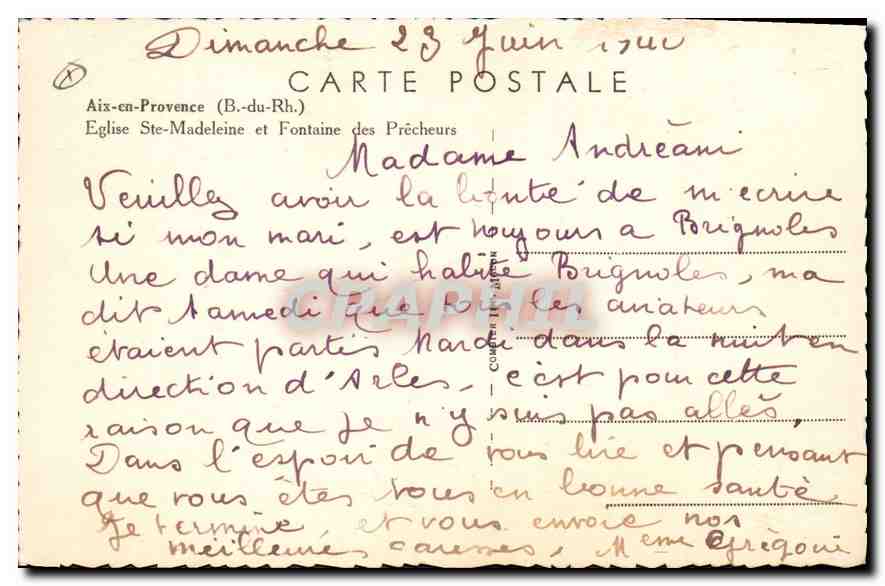 Dimanche 23 Juin 1940
CARTE POSTALE
Aix-en-Provence (B.-du-Rh.)
Eglise Ste-Madeleine et Fontaine des Prêcheurs
Madame Andréani
Veuillez avoir la bonté de m'ecrire
si mon mari, est toujours a Brignoles
Une dame qui habite Brignoles, ma
dit samedi que tous les aviateurs
étaient partis Mardi dans la nuit en
direction d'Arles, c'est pour cette
raison que je n'y suis pas allès,
Dans l'espoir de vous lire et pensant
que vous êtes tous en bonne santè
Je termine, et vous envoie nos
meilleures caresses, Meme Grègoire
COMBIER IMP. MACON
CPAPHIL